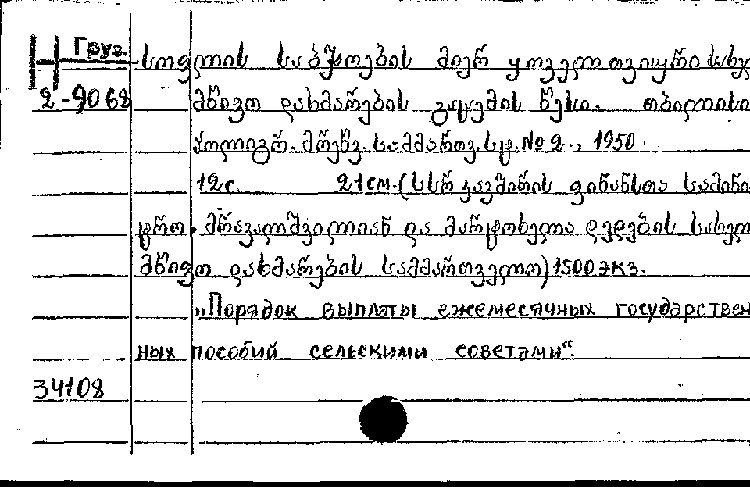 Груз.
სოფლის საბჭოების მიერ ყოველთვიური სახე
2-9068 მწიფო დახმარების გაცემის წესი. თბილისი
პოლიგრ. მრეწვ. სამმართვ. სტ. № 2, 1950.
12 с. 21 см. (სსრ კავშირის ფინანსთა სამინი
სტრო. მრავალშვილიან და მარტოხელა დედების სახელ
მწიფო დახმარების სამმართველო) 1500 экз.
„Порядок выплаты ежемесячных государствен
ных пособий сельскими советами“.
34108